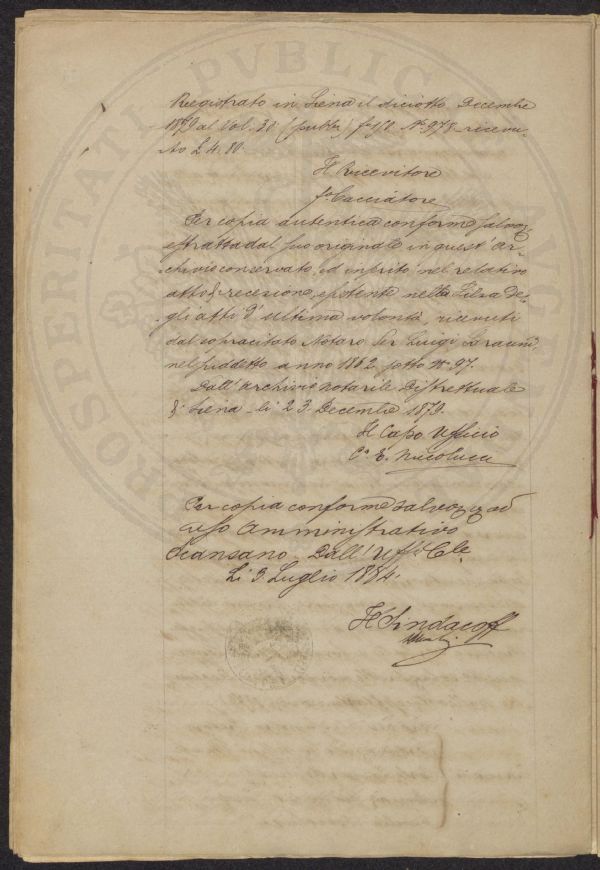 Registrato in Siena il diciotto Decembre
1879 al Vol. 30 (pubb:) f. N° 978 ricevu-
to £ 4.80.
Il Ricevitore
fo Cacciatore
Per copia autentica conforme salvo
estratta dal suo originale in quest' ar-
chivio conservato, ed inserito nel relativo
atto di recezione esistente nella Filza de-
gli atti d' ultima volontà, ricevuti
dal sopracitato Notaro Ser Luigi
nel suddetto anno 1862 sotto N° 97.
Dall' archivio notarile Distrettuale
di Siena li 23 Decembre 1879.
Il Capo Ufficio
E. Nucolucci
Per copia conforme salvo ad
uso Amministrativo
Scansano Dall' Uff° Cle
Li 3 Luglio 1884.
Il Sindaco ff